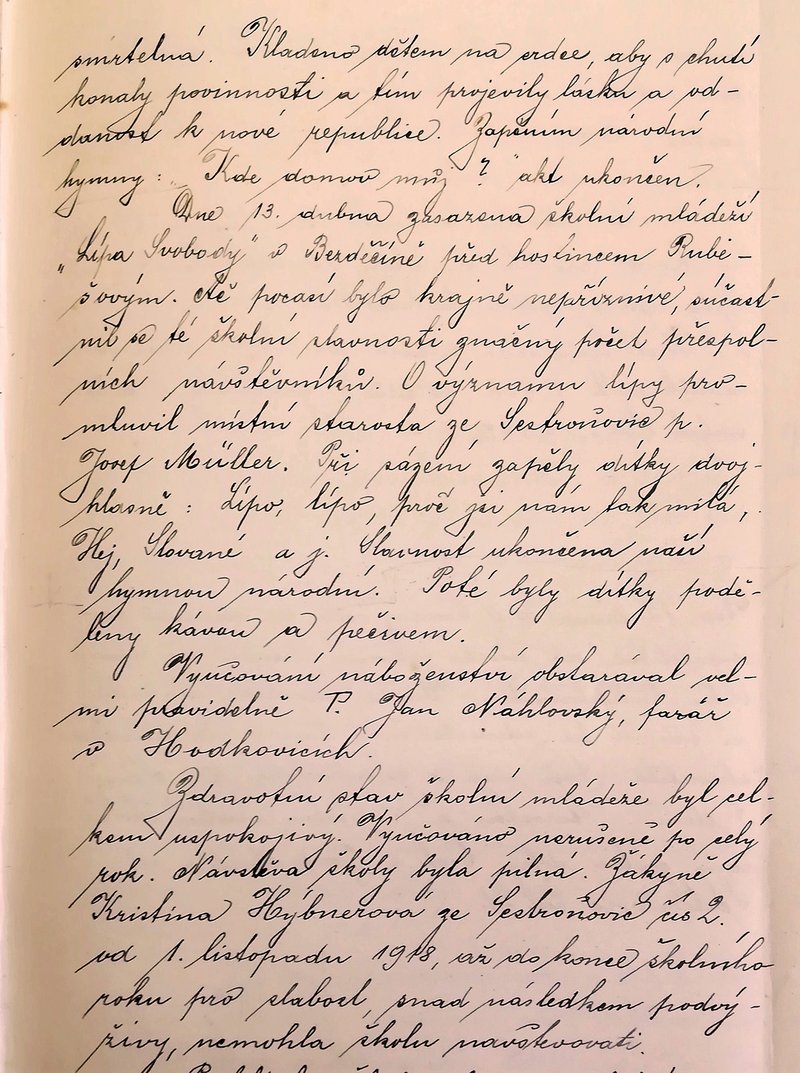 smrtelná. Kladeno dětem na srdce, aby s chutí
konaly povinnosti a tím projevily lásku a od-
danost k nové republice. Zapěním národní
hymny: „Kde domov můj?" akt ukončen.
Dne 13. dubna zasazena školní mládeží
„Lípa Svobody" v Bezděčíně před hostincem Rube-
šovým. Ač počasí bylo krajně nepříznivé, súčast-
nil se té školní slavnosti značný počet přespol-
ních návštěvníků. O významu lípy pro-
mluvil místní starosta ze Sestroňovic p.
Josef Müller. Při sázení zapěly dítky dvoj-
hlasně: Lípo, lípo, proč jsi nám tak milá,
Hej, Slované a j. Slavnost ukončena naší
hymnou národní. Poté byly dítky podě-
leny kávou a pečivem.
Vyučování náboženství obstarával vel-
mi pravidelně P. Jan Náhlovský, farář
v Hodkovicích.
Zdravotní stav školní mládeže byl cel-
kem uspokojivý. Vyučováno nerušeně po celý
rok. Návštěva školy byla pilná. Žákyně
Kristina Hýbnerová ze Sestroňovic čís 2.
od 1. listopadu 1918, až do konce školního
roku pro slabost, snad následkem podvý-
živy, nemohla školu navštěvovati.